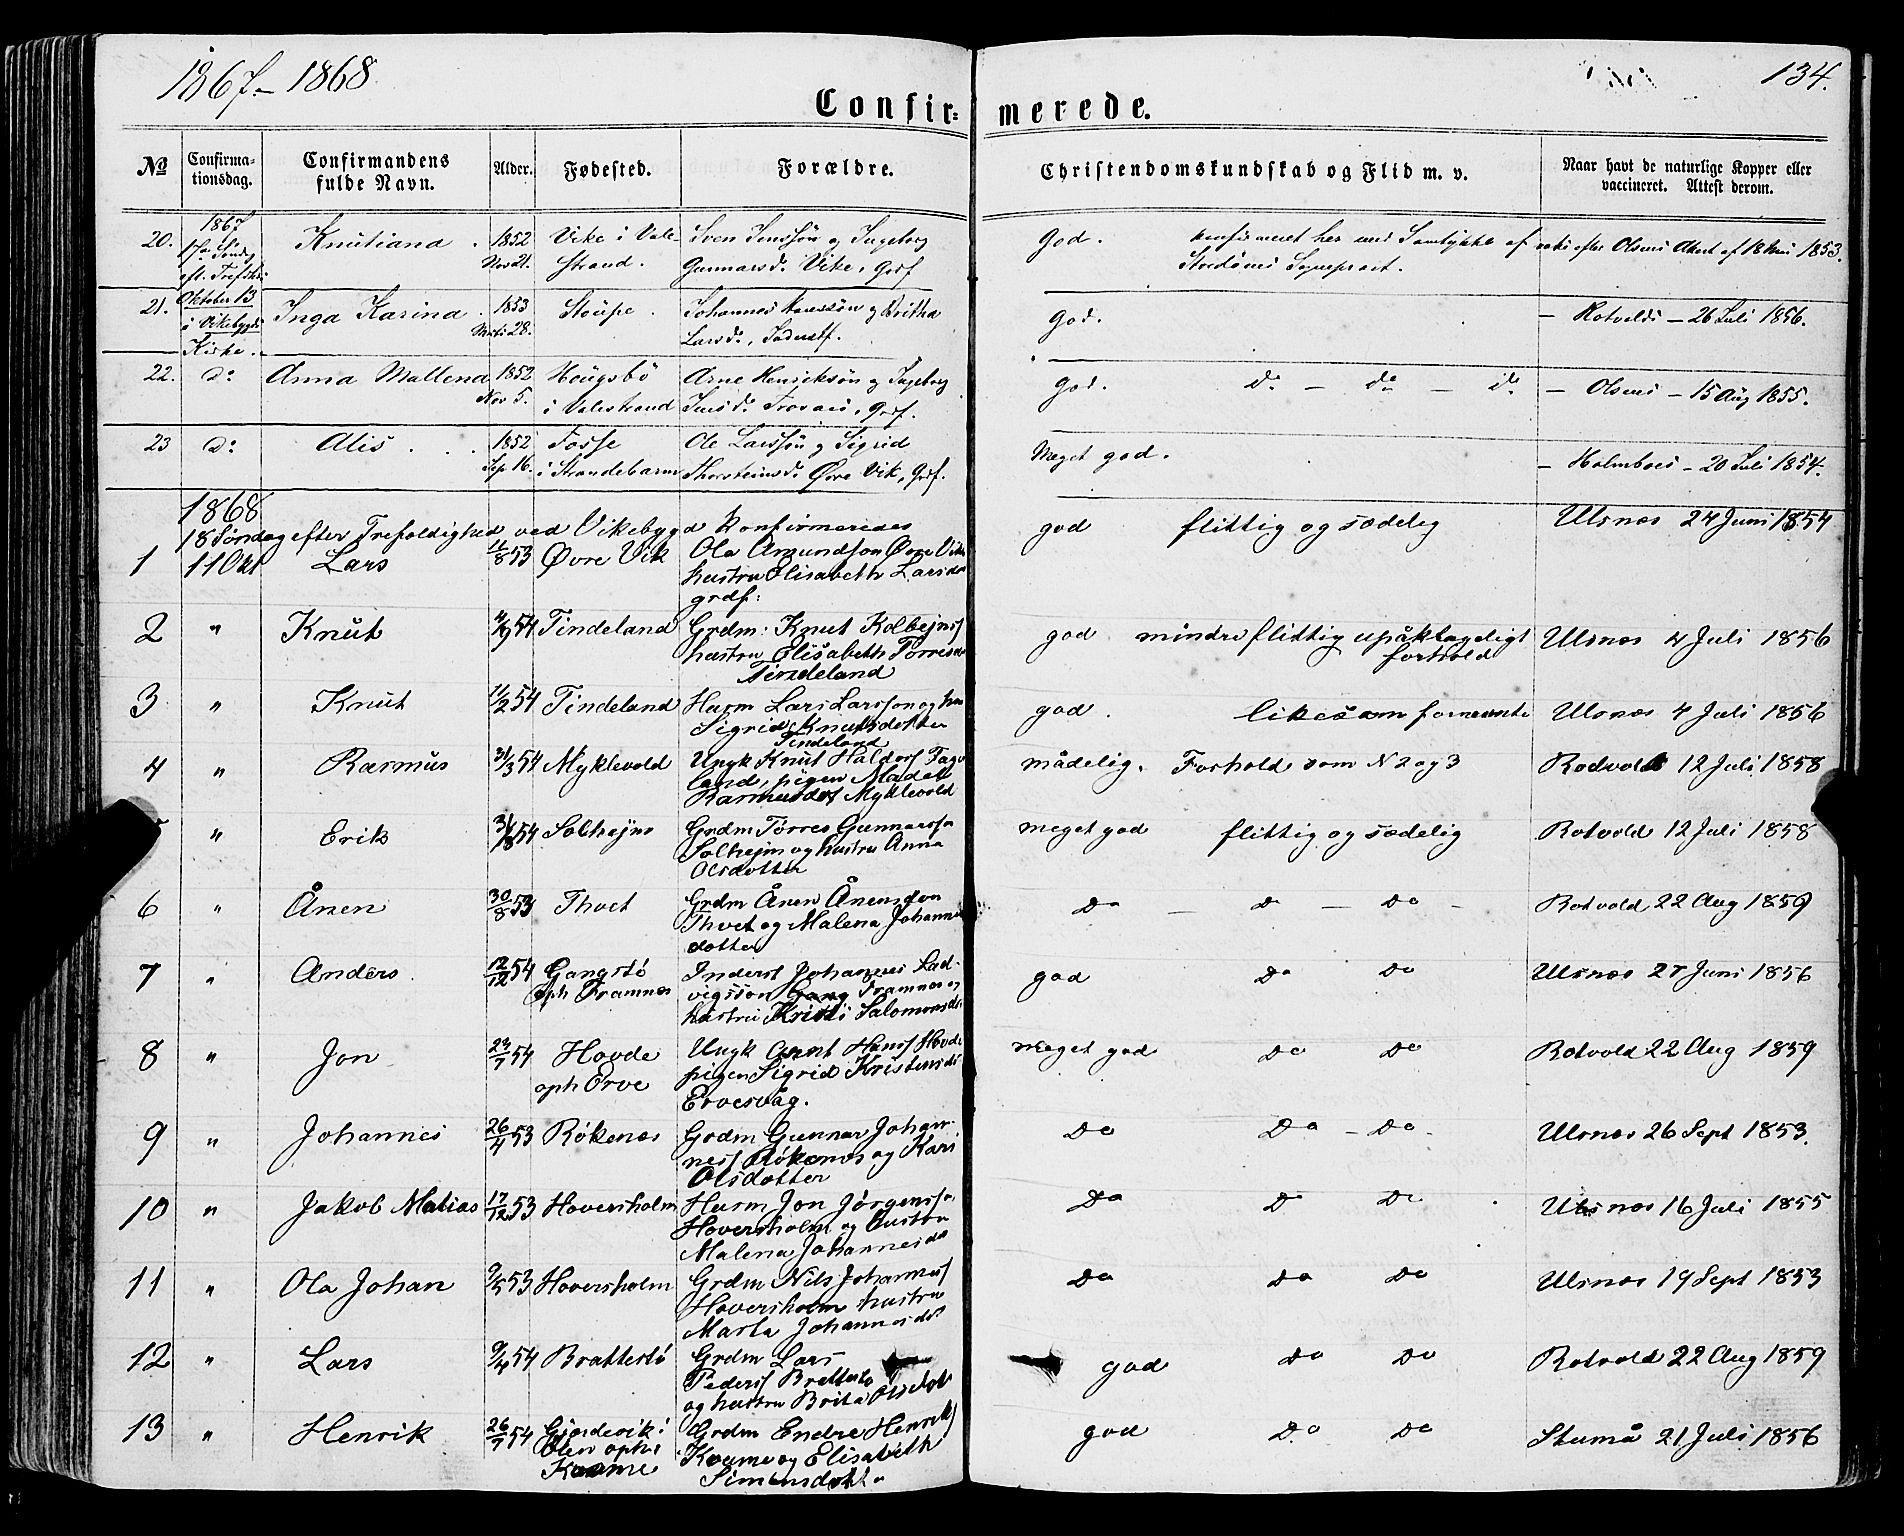 1867-1868
134.
Confir=
merede.
No
Confirma-
tionsdag.
Confirmandens
fulde Navn.
Alder.
Fødested.
Forældre.
Christendomskundskab og Flid m. v.
Naar havt de naturlige Kopper eller
vaccineret. Attest derom.
20.
1867
Knutiana
1852
Nov 21.
Vike i Vale-
strand.
Sven Jenssøn og Ingeborg
Gunnarsd. Vike, Grdf
God.
konfirmeret her med Samtykke af
Stordöens Sognepræst.
vakc efter Olsens Attest af 18 1853.
21.
Oktober 13
i Vikebygds
Kirke.
Inga Karina
1853
28.
Stoupe
Johannes og Britha
Larsd., Inderstf.
God.
— Rotvolds — 26 Juli 1856.
22.
do
Anna Mallena
1852
Nov 5.
Hougsbö
i Valestrand
Arne Henriksön og Ingeborg
Jensd. Grdf.
God.
do — do — do
— Olsens — 15 Aug 1855.
23
do
Alis
1852
Sep 16.
Fosse
i Strandebarm
Ole Larssön og Sigrid
Thorsteinsd. Øvre Vik, Grdf.
Meget god.
— Holmboes — 20 Juli 1854.
1868
18 Søndag efter Trefoldighed ved Vikebygd konfirmeredes
1
11 Okt
Lars
53
Øvre Vik
Ola Amundson Øvre Vik
hustru Elisabeth Larsd
grdf:
god
flittig og sædelig
Ulsnæs 24 Juni 1854
2
"
Knut
54
Tindeland
Grdm: Knut Kolbejnsf
hustru Elisabeth Torresd
Tindeland
god
mindre flittig upåklageligt
forhold
Ulsnæs 4 Juli 1856
3
"
Knut
11/2 54
Tindeland
Husm Lars Larsson og hu
Sigrid Knutsdotter
Tindeland
god.
likesom fornevnte
Ulsnæs 4 Juli 1856
4
"
Rasmus
31/3 54
Myklevold
Ungk Knut Haldorsf Fage
land, pigen
Rasmusdot Myklevold
mådelig.
Forhold som N 2 og 3
Rodvold 12 Juli 1858
"
Erik
31/8 54
Solhejm
Grdm Torres Gunnarsson
Solhejm og hustru Anna
Olsdotter
meget god
flittig og sædelig
Rotvold 12 Juli 1858
6
"
Ånen
30/8 53
Thvet
Grdm Ånen Ånenson
Thvet og Malena Johannes
dotter
Do — Do — Do —
Rotvold 22 Aug 1859
7
"
Anders
12/12 54
Gangstö
oph Framnes
Inderst Johannes Lad-
vigsson Framnes og
hustru Kristi Salomonsd
god
Do Do
Ulsnæs 27 Juni 1856
8
"
Jon
29/7 54
Hovde
oph Erve
Ungk Arnt Hansf Hovde
pigen Sigrid Kristensd
Ervesvåg.
meget god
Do Do
Rotvold 22 Aug 1859
9
"
Johannes
26/4 53
Rökenes
Grdm Gunnar Johan-
nesf Rökenes og Kari
Olsdotter
Do
Do — Do —
Ulsnæs 26 Sept 1853.
10
"
Jakob Matias
17/12 53
Hoversholm
Husm Jon Jörgensson
Hoversholm og hustru
Malena Johannesd
Do
Do Do
Ulsnæs 16 Juli 1855
11
"
Ola Johan
9/5 53
Hoversholm
Grdm Nils Johannesf
Hoversholm hustru
Marta Johannesd
Do
Do Do
Ulsnæs 19 Sept 1853
12
"
Lars
9/4 54
Brattestö
Grdm Lars
Pedersf Brettestö
og hustru Brita Olsdot
god
Do Do
Rotvold 22 Aug 1859
13
"
Henrik
26/7 54
Gjerdevik i
Ölen oph i
Kvame
Grdm Endre Henriksf
Kvame og Elisabeth
Simonsdotte
god
Do Do
Stumå 21 Juli 1856